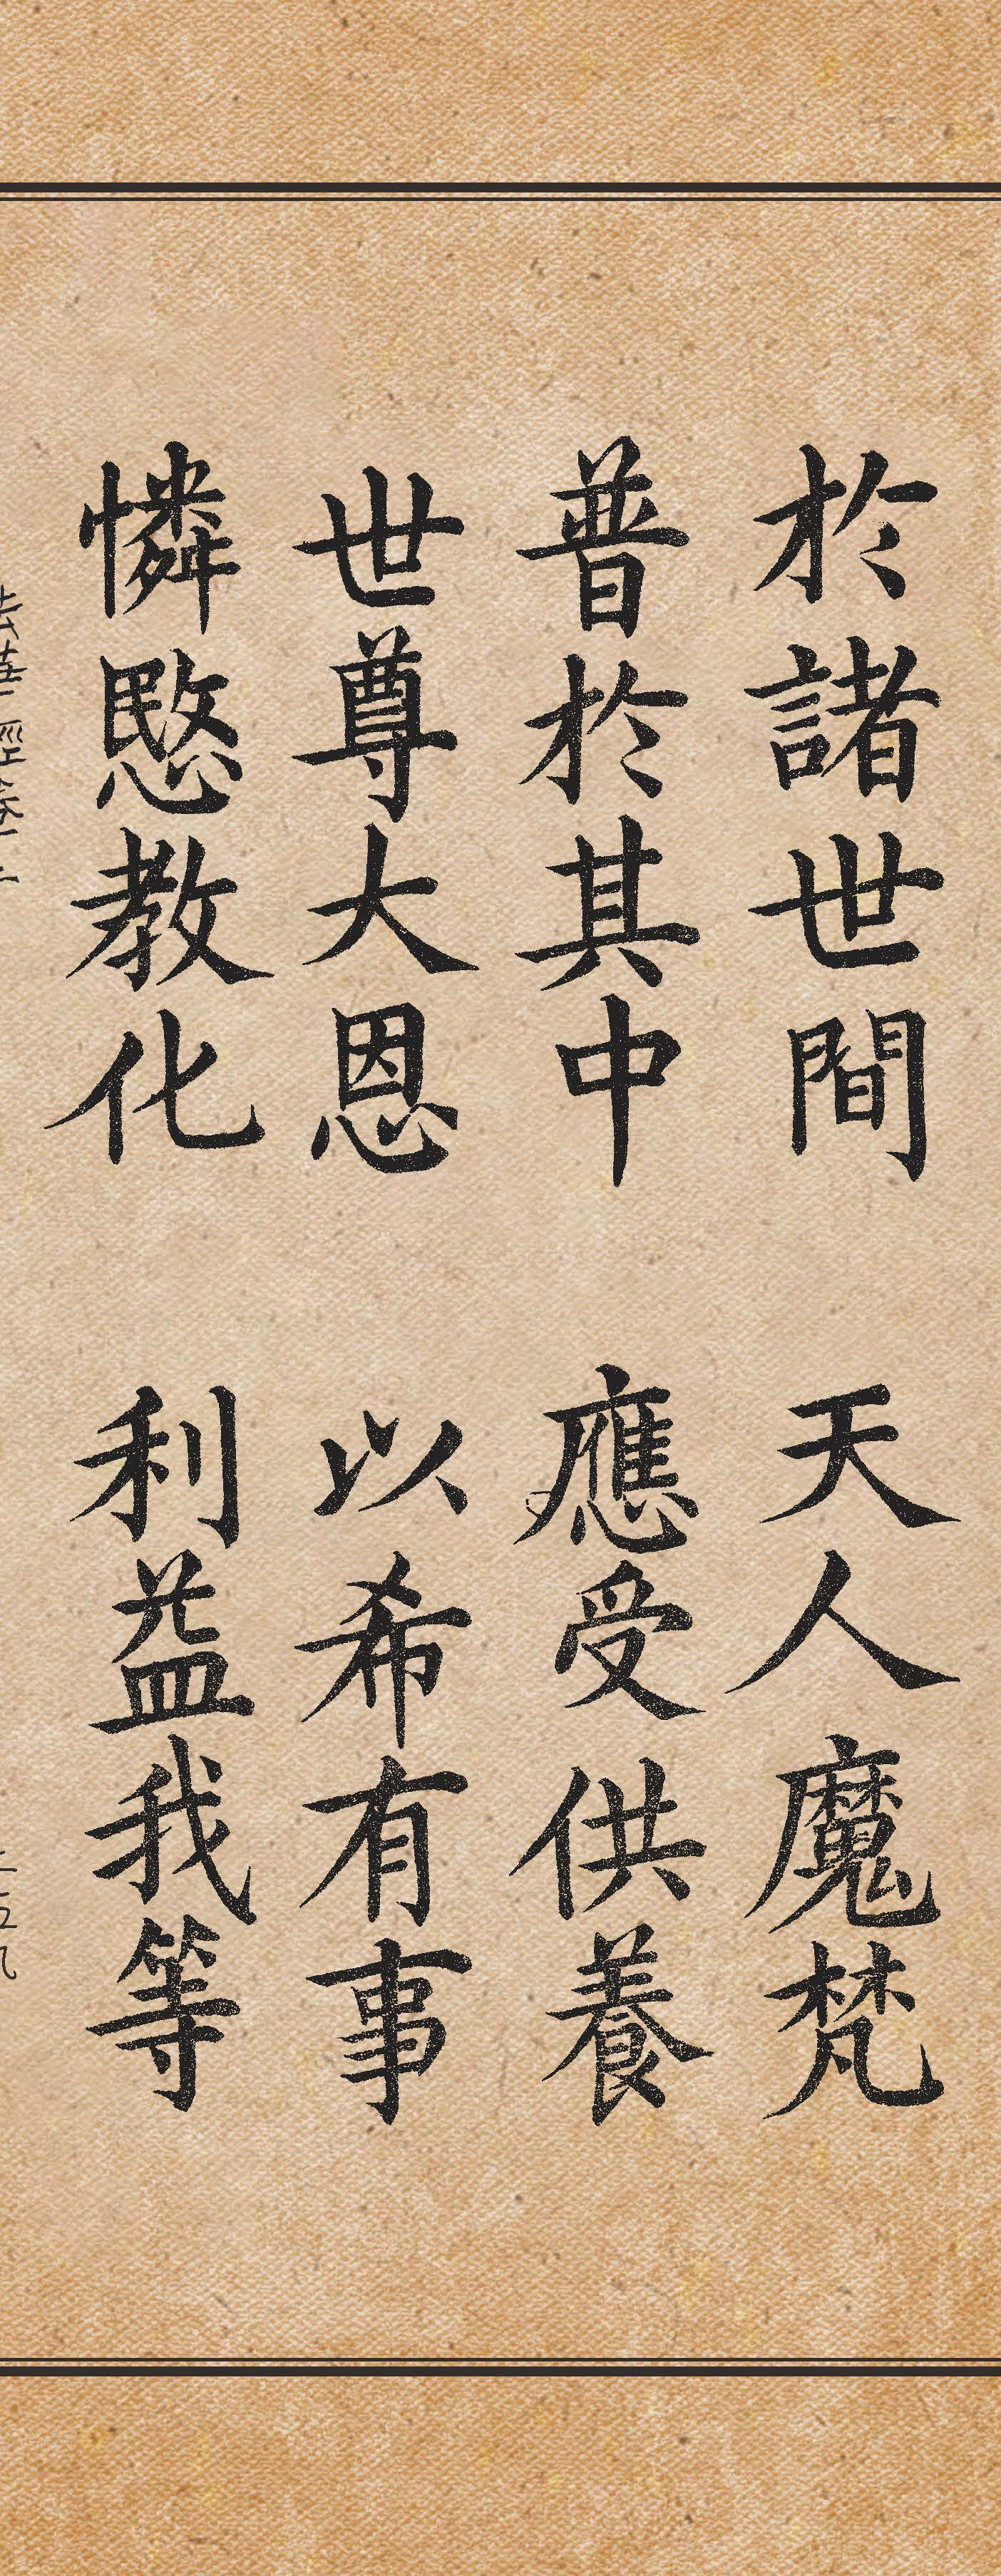 於諸世間 天人魔梵
普於其中 應受供養
世尊大恩 以希有事
憐愍教化 利益我等